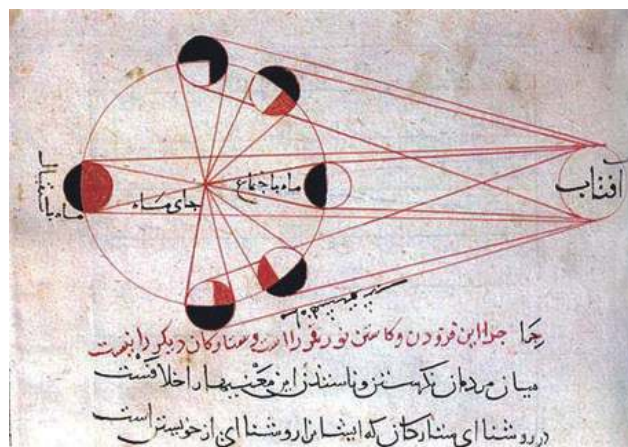 افتاب
ماه باجتماع
جای ماه
ماه باستقبال
چرا این فزودن و کاستن نور قمر را است و ستارکان دیکر را نیست
میان مردمان نکرستن و دانستن این معنیها را خلافست
در روشنا ای ستارکان که ایشانرا روشنا ای از خویشتن است